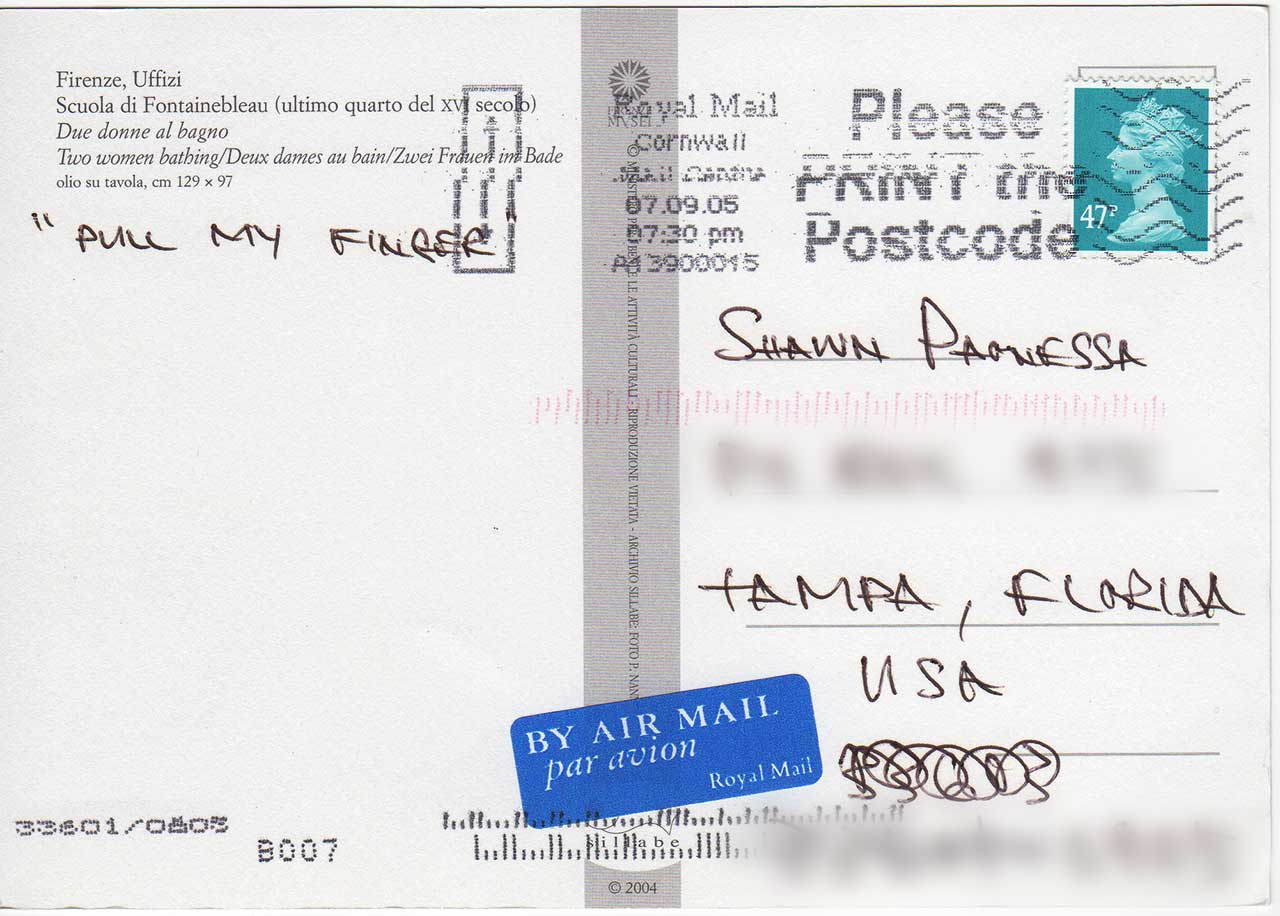 Firenze, Uffizi
Scuola di Fontainebleau (ultimo quarto del XVI secolo)
Due donne al bagno
Two women bathing/Deux dames au bain/Zwei Frauen im Bade
olio su tavola, cm 129 × 97
"PULL MY FINGER"
Royal Mail
Cornwall
Mail Centre
07.09.05
07:30 pm
3900015
Please
PRINT the
Postcode
47P
E LE ATTIVITÀ CULTURALI - RIPRODUZIONE VIETATA - ARCHIVIO SILLABE: FOTO P. NAN
SHAWN PAGNESSA
TAMPA, FLORIDA
USA
BY AIR MAIL
par avion
Royal Mail
33601/0805
B007
sillabe
© 2004